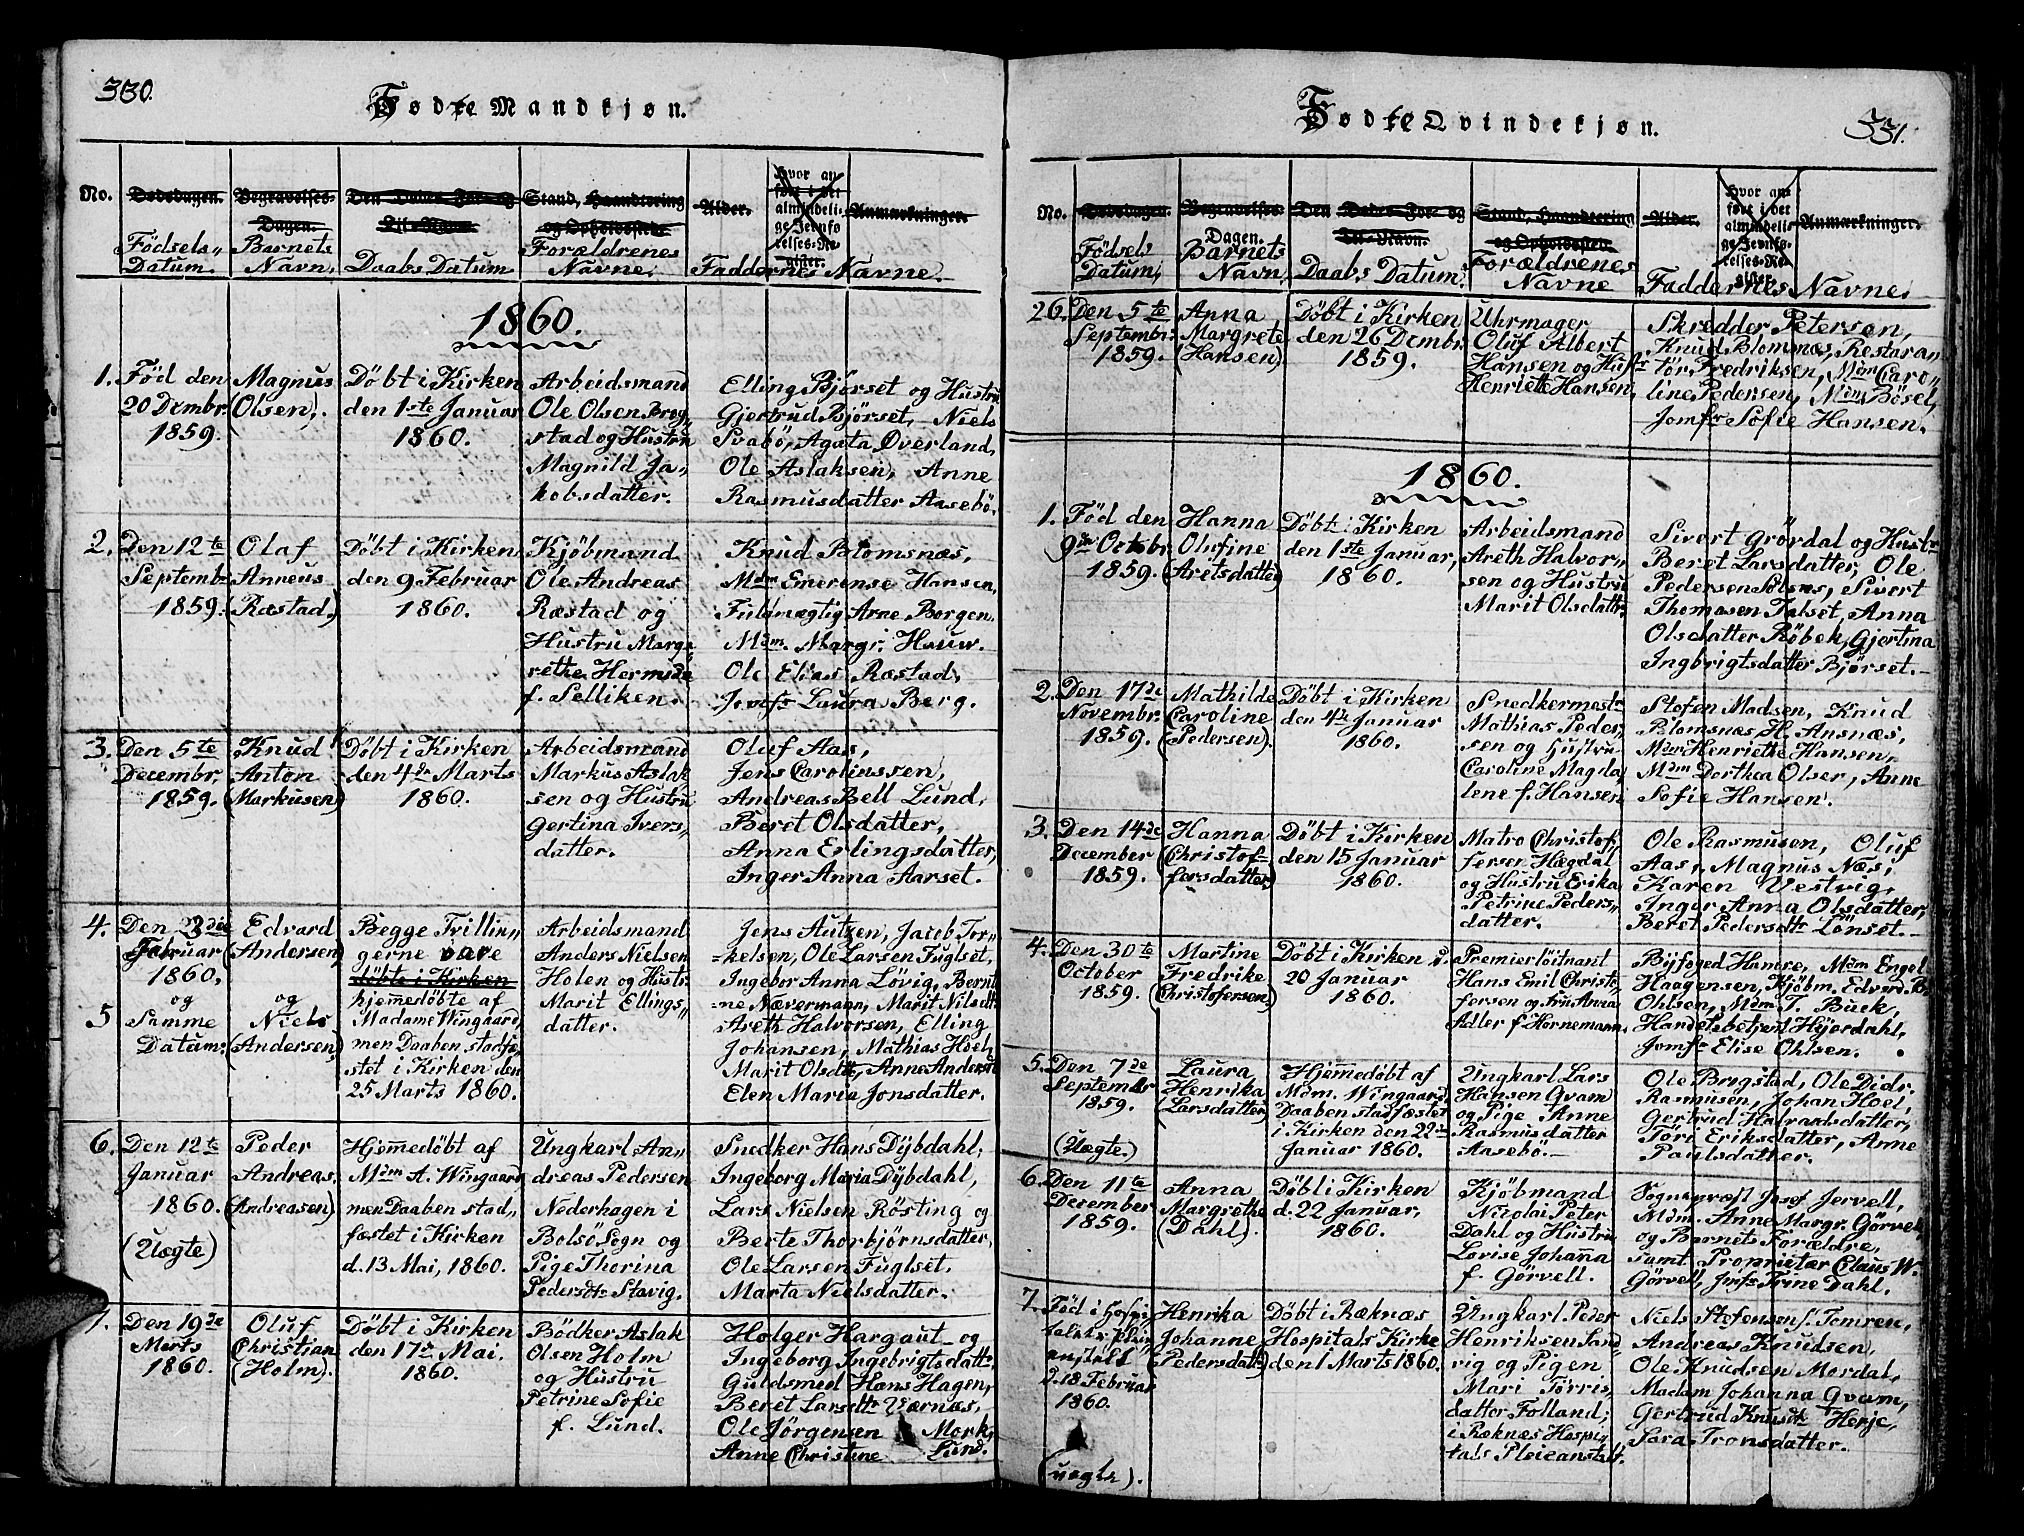 330.
Fødte Mandkjøn.
No. Dødsdagen. Begravelses-Dagen. Den Dødes For- og Til-Navn. Stand, Haandtering og Opholdssted. Alder. Hvor anført i det almindelige Jevnførelses-Register. Anmærkninger.
Fødsels Datum. Barnets Navn. Daabs Datum. Forældrenes Navne. Faddernes Navne.
1860.
1. Fød den
20 Dcmbr
1859.
Magnus
(Olsen).
Døbt i Kirken
den 1ste Januar
1860.
Arbeidsmand
Ole Olsen Brog„
stad og Hustru
Magnild Ja„
kobsdatter.
Elling Bjørset og Hustru
Gjertrud Bjørset, Niels
Svabö, Agata Overland,
Ole Aslaksen, Anne
Rasmusdatter Aasebö.
2. Den 12te
Septembr
1859.
Olaf
Anneus
(Ræstad)
Döbt i Kirken
den 9. Februar
1860.
Kjöbmand
Ole Andreas
Ræstad og
Hustru Marg„
rethe Hermida
f. Selliken.
Knud Blomsnæs,
Mdm Emerense Hansen
Fuldmægtig Arne Borgen
Mdm. Margr. Hauw.
Ole Elias Ræstad,
Jomfr Laura Berg.
3. Den 5te
Decembr.
1859.
Knud
Anton
(Markusen)
Döbt i Kirken
den 4de Marts
1860.
Arbeidsmand
Markus Aslak
sen og Hustru
Gertina Ivers„
datter.
Oluf Aas,
Jens Carolinssen,
Andreas Bell Lund,
Beret Olsdatter,
Anna Erlingsdatter,
Inger Anna Aarset.
4. Den
Februar
1860.
og
5 Samme
Datum.
Edvard
(Andersen)
og
Niels
(Andersen)
Begge Tvillin„
gerne vare
døbte i Kirken
hjemedöbte af
Madame Wingaard,
men Daaben stadfæ„
stet i Kirken den
25 Marts 1860.
Arbeidsmand
Anders Nielsen
Holen og Hustr.
Marit Ellings„
datter.
Jens Autzen, Jacob Tor„
kelsen, Ole Larsen Fuglset,
Ingebor Anna Lövig, Bernt
ne Nævermann, Marit Nilsdtt
Areth Halvorsen, Elling
Johansen, Mathias Hoel,
Marit Olsdtt, Anne Andersd
Elen Maria Jonsdatter.
6. Den 12te
Januar
1860.
(Uægte)
Peder
Andreas,
(Andreasen)
Hjemedöbt af
Mdm A. Wingaard
men Daaben stad„
fæstet i Kirken
d. 13 Mai, 1860.
Ungkarl An„
dreas Pedersen
Nederhagen i
Bolsö Sogn og
Pige Thorina
Pedersdtt. Stavig.
Snedker Hans Dybdahl,
Ingeborg Maria Dybdahl,
Lars Nielsen Rösting og
Berte Thorbjörnsdatter,
Ole Larsen Fuglset.
Marta Nielsdatter.
7. Den 19de
Marts
1860.
Oluf
Christian
(Holm).
Döbt i Kirken
den 17de Mai.
1860.
Bödker Aslak
Olsen Holm
og Hustru
Petrine Sofie
f. Lund.
Holger Hargaut og
Ingeborg Ingebrigtsdattr
Guldsmed Hans Hagen,
Beret Larsdtt Værnæs,
Ole Jörgensen Mork,
Anne Christine Lund.
Fødte Qvindekjøn.
331.
No. Dødsdagen. Begravelses-Dagen. Den Dødes For- og Til-Navn. Stand, Haandtering og Opholdssted. Alder. Hvor anført i det almindelige Jevnførelses-Register. Anmærkninger.
Fødsels Datum. Barnets Navn. Daabs Datum. Forældrenes Navne. Faddernes Navne.
26. Den 5te
Septembr.
1859.
Anna
Margrete
(Hansen)
Döbt i Kirken
den 26 Dcmbr.
1859.
Uhrmager
Oluf Albert
Hansen og Hustr
Henriette Hansen,
Skredder Peterson,
Knud Blomsnæs, Restara„
tör Fredriksen, Mdm Caro„
line Pedersen, Mdm Bösel,
Jomfr Sofie Hansen.
1860.
1. Föd den
9de Octobr.
1859.
Hanna
Olufine
(Aretsdatter)
Döbt i Kirken
den 1ste Januar,
1860.
Arbeidsmand
Areth Halvor„
sen og Hustru
Marit Olsdattr.
Sivert Grördal og Hustr
Beret Larsdatter, Ole
Pedersen Sølsnæs, Sivert
Thomasen Talset, Anna
Olsdatter Röbek, Gjertina
Ingbrigtsdatter Bjørset.
2. Den 17de
Novembr.
1859.
Mathilde
Caroline
(Pedersen).
Döbt i Kirken
den 4de Januar
1860.
Snedkermestr
Mathias Peder„
sen og Hustru
Caroline Magda
lene f. Hansen
Stefen Madsen, Knud
Blomsnæs, H. Ansnæs,
Mdm Henriette Hansen,
Mdm Dorthea Olsen, Anne
Sofie Hansen.
3. Den 14de
December
1859.
Hanna
(Christof„
fersdatter)
Döbt i Kirken
den 15 Januar
1860.
Matro Christof„
fersen Hægdal
og Hustru Erika
Petrine Peders„
datter.
Ole Rasmusen, Oluf
Aas, Magnus Næs,
Karen Vestvig,
Inger Anna Olsdatter,
Beret Pedersdtt Lönset.
4. Den 30te
October
1859.
Martine
Fredrike
(Christofersen)
Döbt i Kirken d.
20 Januar
1860.
Premierlöitnant
Hans Emil Christo„
fersen og Fru Anna
Adler f. Hornemann,
Byfoged Hamre, Mdm Engel
Haagensen, Kjöbm. Edvard B.
Ohlsen, Mdm T. Buck,
Handelsbetjent Hjordahl,
Jomfr Elise Ohlsen.
5. Den 7de
September
1859.
(Uægte.)
Laura
Henrika
(Larsdatter)
Hjemedöbt af
Mdm. Wingaard,
Daaben stadfæstet
i Kirken den 22de
Januar 1860.
Ungkarl Lars
Hansen Qvam
og Pige Anne
Rasmusdatter
Aasebö.
Ole Brogstad, Ole Didr.
Rasmusen, Johan Hoel,
Gertrud Halvardsdatter,
Töri Eriksdatter, Anne
Paulsdatter.
6. Den 11te
December
1859.
Anna
Margrethe
(Dahl).
Döbt i Kirken
d. 22 Januar,
1860.
Kjöbmand
Nicolai Peter
Dahl og Hustru
Lovise Johanna
f. Görvell.
Sognepræst Josef Jervell,
Mdm. Anne Margr. Görvel,
og Barnets Forældre,
samt Proprietær Claus W.
Görvell, Jmfr Trine Dahl.
7. Föd i Hospi„
talets Plei„
anstalt
d. 18 Februar
1860.
(uægte).
Henrika
Johanne
(Pedersdatr)
Döbt i Ræknæs
Hospitals Kirke
den 1 Marts 1860.
Ungkarl Peder
Henriksen Sand
vig og Pigen
Mari Törris„
datter Folland;
i Reknes Hospi„
tals Pleieanstalt.
Niels Stefensen s. Tomren,
Andreas Knudsen,
Ole Knudsen Mordal,
Madam Johanna Qvam,
Gertrud Knusdt Herje,
Sara Tronsdatter.